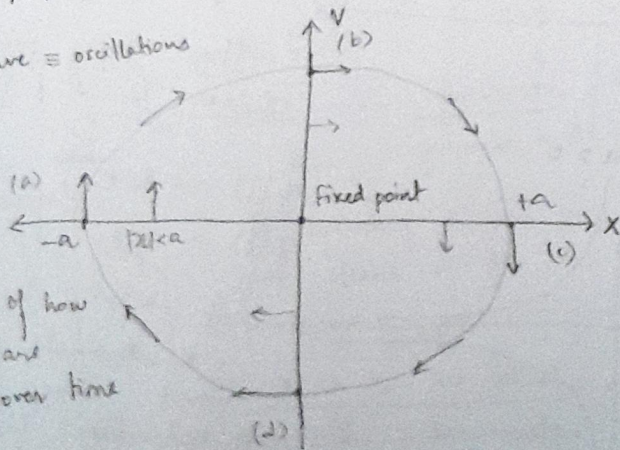 ≡ oscillations
V
(b)
(a)
fixed point
+a
-a
|x|<a
X
(c)
of how
are
over time
(d)